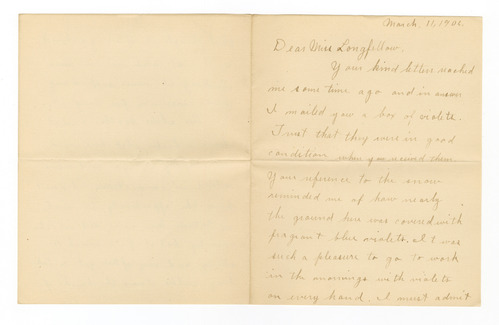 March, 11, 1906.
Dear Miss Longfellow.
Your kind letter reached
me some time ago and in answer
I mailed you a box of violets.
Trust that they were in good
condition when you received them.
Your reference to the snow
reminded me of how nearly
the ground here was covered with
fragrant blue violets. It was
such a pleasure to go to work
in the mornings with violets
on every hand. I must admit